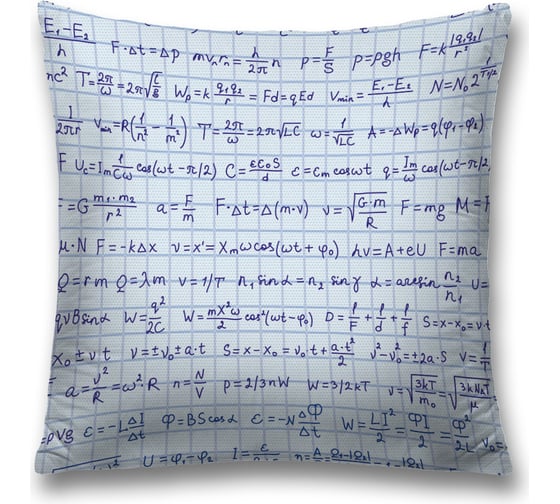 E₁-E₂/h F·Δt=Δp mvₙrₙ=h/2π n p=F/S p=ρgh F=k|q₁q₂|/r²
mc² T=2π/ω=2π√(l/g) Wₚ=k q₁q₂/r=Fd=qEd νmin=E₁-E₂/h N=N₀2
I/2πr νmin=R(1/n²-1/m²) T=2π/ω=2π√LC ω=1/√LC A=-ΔWₚ=q(φ₁-φ₂)
F U_C=Iₘ1/Cω cos(ωt-π/2) C=εε₀S/d ε=εₘcosωt q=Iₘ/ω cos(ωt-π/2)
F=G m₁·m₂/r² a=F/m F·Δt=Δ(m·v) v=√(G·m/R) F=mg M=F
μ·N F=-kΔx v=x'=Xₘωcos(ωt+φ₀) hν=A+eU F=ma
Q=rm Q=λm ν=1/T n₁sinα=n₂sinγ α=arcsin n₂/n₁ U=
qvBsinα W=q²/2C W=mX²ω/2 cos²(ωt-φ₀) D=1/F=1/d+1/f S=x-x₀=v·t
x₀±vt v=±v₀±a·t S=x-x₀=v₀t+a·t²/2 v²-v₀²=±2a·S ν=1/T
a=v²/R=ω²·R n=N/V p=2/3nW W=3/2kT v=√(3kT/m₀)=√(3kNₐT/μ)
=ρVg ε=-LΔI/Δt Φ=BScosα ε=-NΔΦ/Δt W=LI²/2=ΦI/2=Φ²/2L v₀=
U=φ₁-φ₂ I=ε